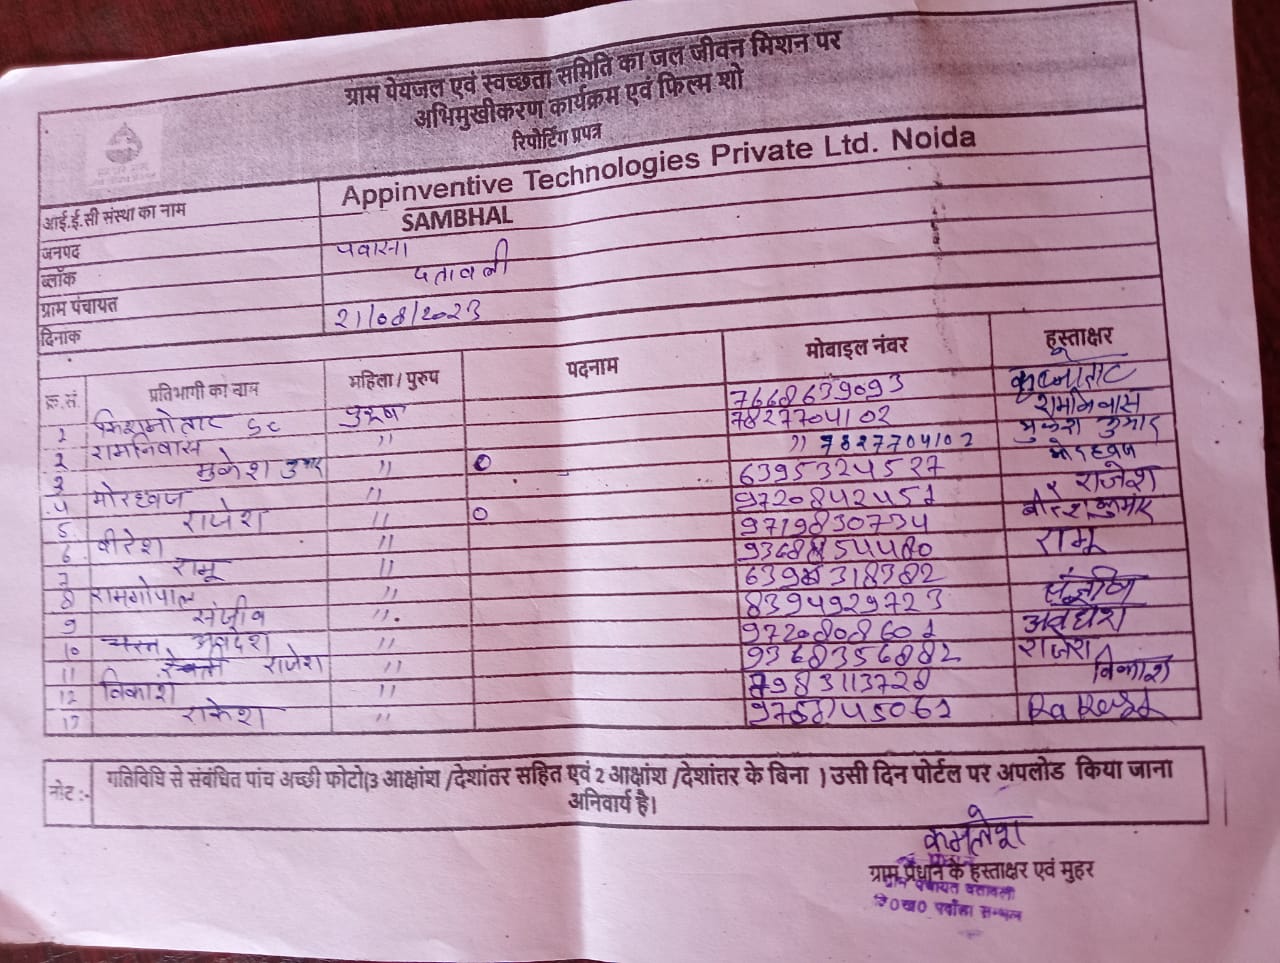 ग्राम पेयजल एवं स्वच्छता समिति का जल जीवन मिशन पर
अभिमुखीकरण कार्यक्रम एवं फिल्म शो
रिपोर्टिंग प्रपत्र
आई.ई.सी संस्था का नाम Appinventive Technologies Private Ltd. Noida
जनपद SAMBHAL
ब्लॉक पवासा
ग्राम पंचायत
दिनाक 21/08/2023
क्र.सं. प्रतिभागी का नाम महिला / पुरुष पदनाम मोबाइल नंबर हस्ताक्षर
1 पुरूष 7668639093
2 रामनिवास " 7827704102 रामनिवास
3 मुकेश कुमार " " 7827704102 मुकेश कुमार
4 मोरध्वज " 6395324527 मोरध्वज
5 राजेश " 9720842451 राजेश
6 वीरेश " 9719830734
7 रामू " रामू
8 रामगोपाल "
9 संजीव " 8394929723
10 अवदेश " 9720808601 अवधेश
11 राजेश " 9368356882 राजेश
12 विकाश " 7983113728 विकाश
13 राकेश "
नोट :- गतिविधि से संबंधित पांच अच्छी फोटो(3 आक्षांश /देशांतर सहित एवं 2 आक्षांश /देशांतर के बिना ) उसी दिन पोर्टल पर अपलोड किया जाना
अनिवार्य है।
कमलेश
ग्राम प्रधान के हस्ताक्षर एवं मुहर